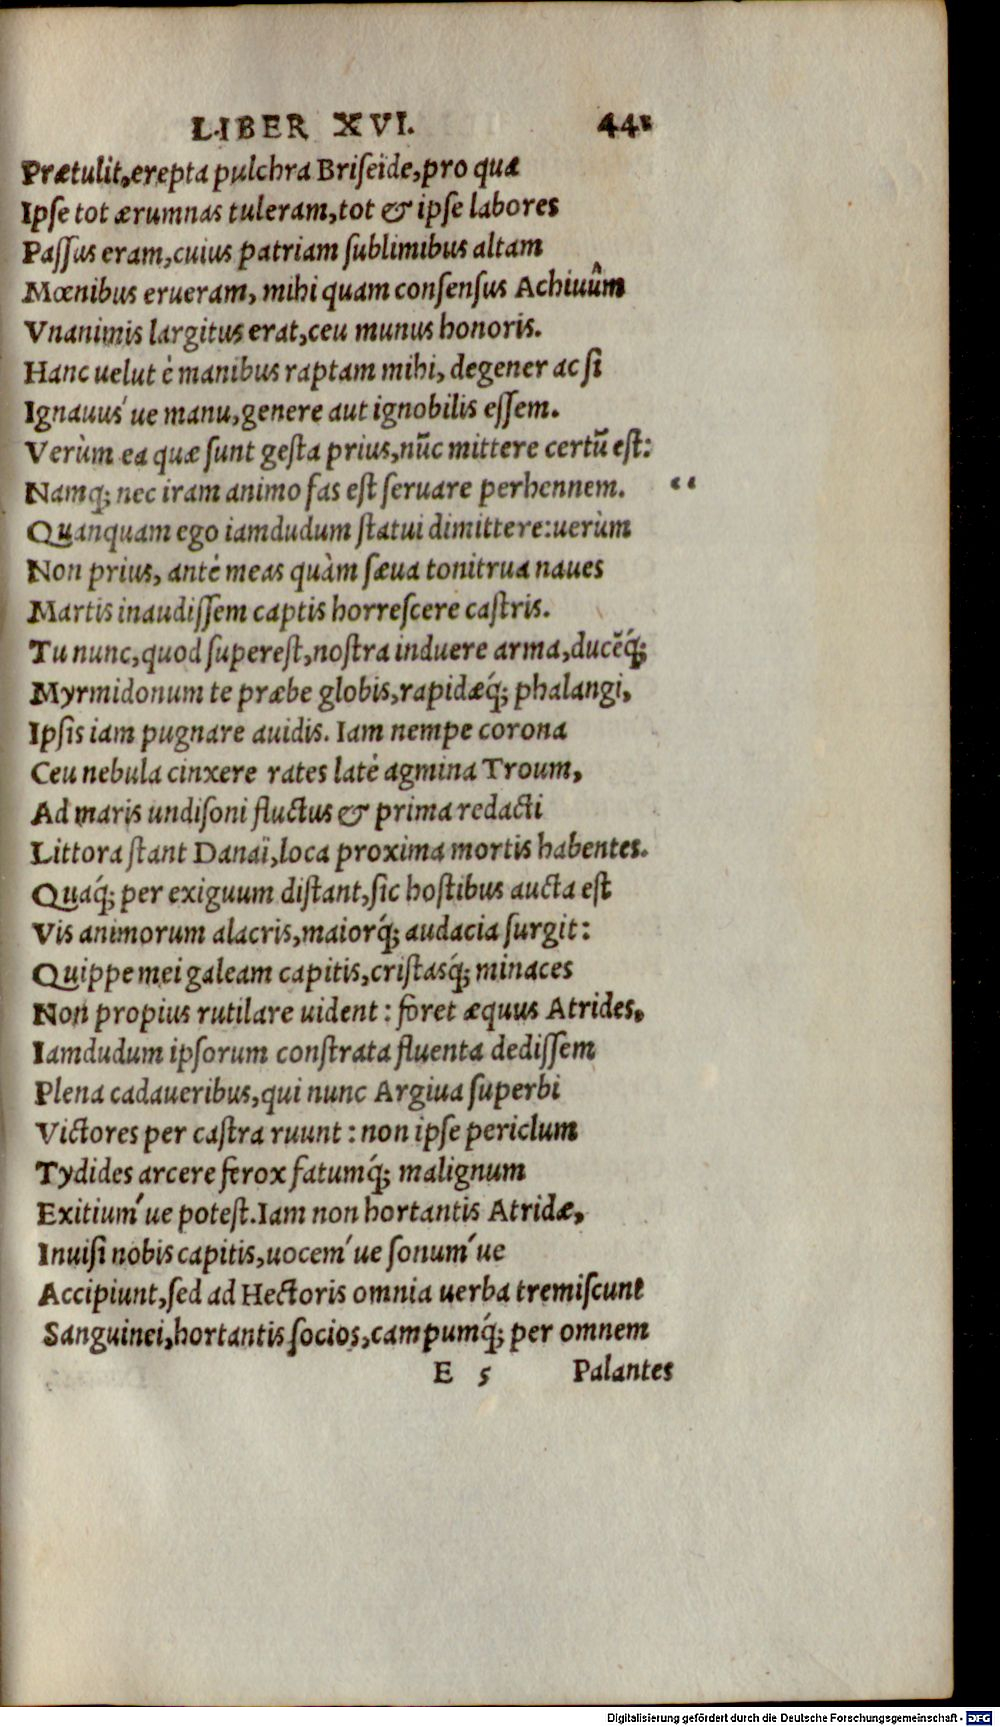 LIBER XVI. 441
Prætulit, erepta pulchra Briſeide, pro qua
Ipſe tot ærumnas tuleram, tot & ipſe labores
Paſſus eram, cuius patriam ſublimibus altam
Mœnibus erueram, mihi quam conſenſus Achiuûm
Vnanimis largitus erat, ceu munus honoris.
Hanc uelut è manibus raptam mihi, degener ac ſi
Ignauus´ue manu, genere aut ignobilis eſſem.
Verùm ea quæ ſunt geſta prius, nūc mittere certū eſt:
Namq; nec iram animo fas eſt ſeruare perhennem. “
Quanquam ego iamdudum ſtatui dimittere: uerùm
Non prius, antè meas quàm ſæua tonitrua naues
Martis inaudiſſem captis horreſcere caſtris.
Tu nunc, quod ſupereſt, noſtra induere arma, ducēq́;
Myrmidonum te præbe globis, rapidæq́; phalangi,
Ipſis iam pugnare auidis. Iam nempe corona
Ceu nebula cinxere rates latè agmina Troum,
Ad maris undiſoni fluctus & prima redacti
Littora ſtant Danaï, loca proxima mortis habentes.
Quaq́; per exiguum diſtant, ſic hoſtibus aucta eſt
Vis animorum alacris, maiorq́; audacia ſurgit:
Quippe mei galeam capitis, criſtasq́; minaces
Non propius rutilare uident: foret æquus Atrides,
Iamdudum ipſorum conſtrata fluenta dediſſem
Plena cadaueribus, qui nunc Argiua ſuperbi
Victores per caſtra ruunt: non ipſe periclum
Tydides arcere ferox fatumq́; malignum
Exitium´ue poteſt. Iam non hortantis Atridæ,
Inuiſi nobis capitis, uocem´ue ſonum´ue
Accipiunt, ſed ad Hectoris omnia uerba tremiſcunt
Sanguinei, hortantis ſocios, campumq́; per omnem
E 5 Palantes
Digitalisierung gefördert durch die Deutsche Forschungsgemeinschaft - DFG